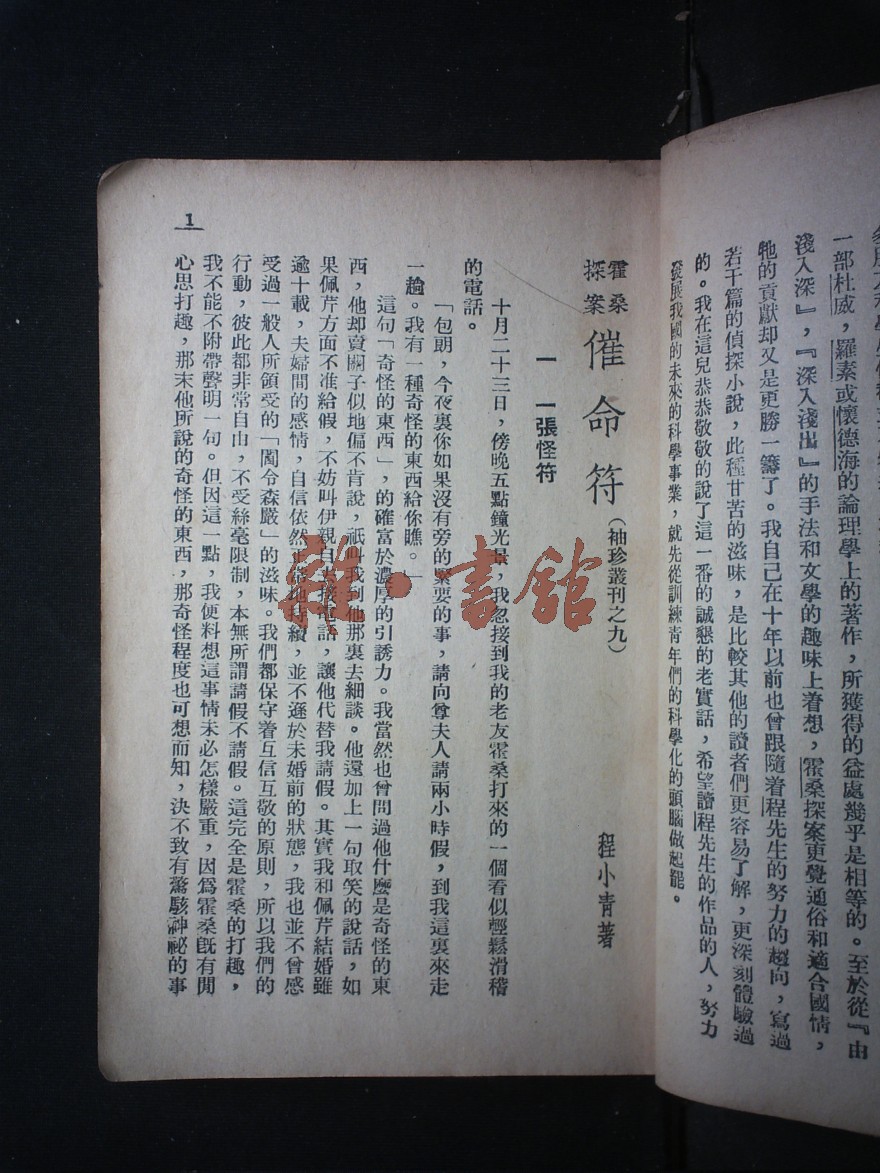 一部杜威，羅素或懷德海的論理學上的著作，所獲得的益處幾乎是相等的。至於從『由
淺入深』，『深入淺出』的手法和文學的趣味上着想，霍桑探案更覺通俗和適合國情，
牠的貢獻却又是更勝一籌了。我自己在十年以前也曾跟隨着程先生的努力的趨向，寫過
若干篇的偵探小說，此種甘苦的滋味，是比較其他的讀者們更容易了解，更深刻體驗過
的。我在這兒恭恭敬敬的說了這一番的誠懇的老實話，希望讀程先生的作品的人，努力
發展我國的未來的科學事業，就先從訓練青年們的科學化的頭腦做起罷。
霍桑探案 催命符（袖珍叢刊之九） 程小青著
一 一張怪符
十月二十三日，傍晚五點鐘光景，我忽接到我的老友霍桑打來的一個看似輕鬆滑稽
的電話。
「包朗，今夜裏你如果沒有旁的緊要的事，請向尊夫人請兩小時假，到我這裏來走
一趟。我有一種奇怪的東西給你瞧。」
這句「奇怪的東西」，的確富於濃厚的引誘力。我當然也曾問過他什麼是奇怪的東
西，他却賣關子似地偏不肯說，祇叫我到他那裏去細談。他還加上一句取笑的說話，如
果佩芹方面不准給假，不妨叫伊親自去接電話，讓他代替我請假。其實我和佩芹結婚雖
逾十載，夫婦間的感情，自信依然正常地持續，並不遜於未婚前的狀態，我也並不曾感
受過一般人所領受的「閫令森嚴」的滋味。我們都保守着互信互敬的原則，所以我們的
行動，彼此都非常自由，不受絲毫限制，本無所謂請假不請假。這完全是霍桑的打趣，
我不能不附帶聲明一句。但因這一點，我便料想這事情未必怎樣嚴重，因爲霍桑旣有閒
心思打趣，那末他所說的奇怪的東西，那奇怪程度也可想而知，決不致有驚駭神祕的事
1
雜·書館